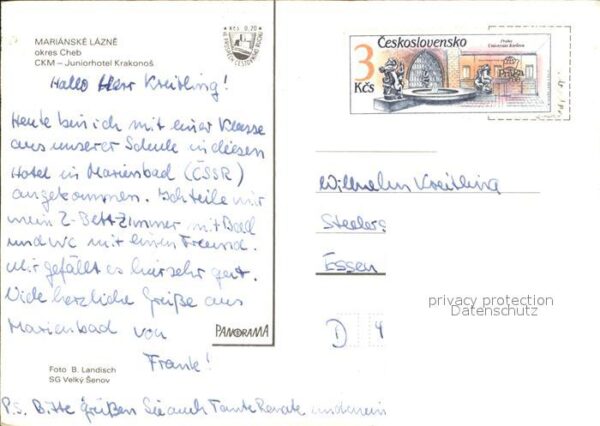 MARIÁNSKÉ LÁZNĚ
okres Cheb
CKM – Juniorhotel Krakonoš
Kčs 0,20
Hallo Herr Kreitling!
Heute bin ich mit einer Klasse
aus unserer Schule in diesen
Hotel in Marienbad (ČSSR)
angekommen. Ich teile mir
mein 2-Bettzimmer mit Bad
und WC mit einem Freund.
Mir gefällt es hier sehr gut.
Viele herzliche Grüße aus
Marienbad von
Frank!
PANORAMA
Foto B. Landisch
SG Velký Šenov
P.S. Bitte grüßen Sie auch Tante Renate und
3 Kčs
Československo
Praha
Universita Karlova
Wilhelm Kreitling
Steelers
Essen
privacy protection
Datenschutz
D 4